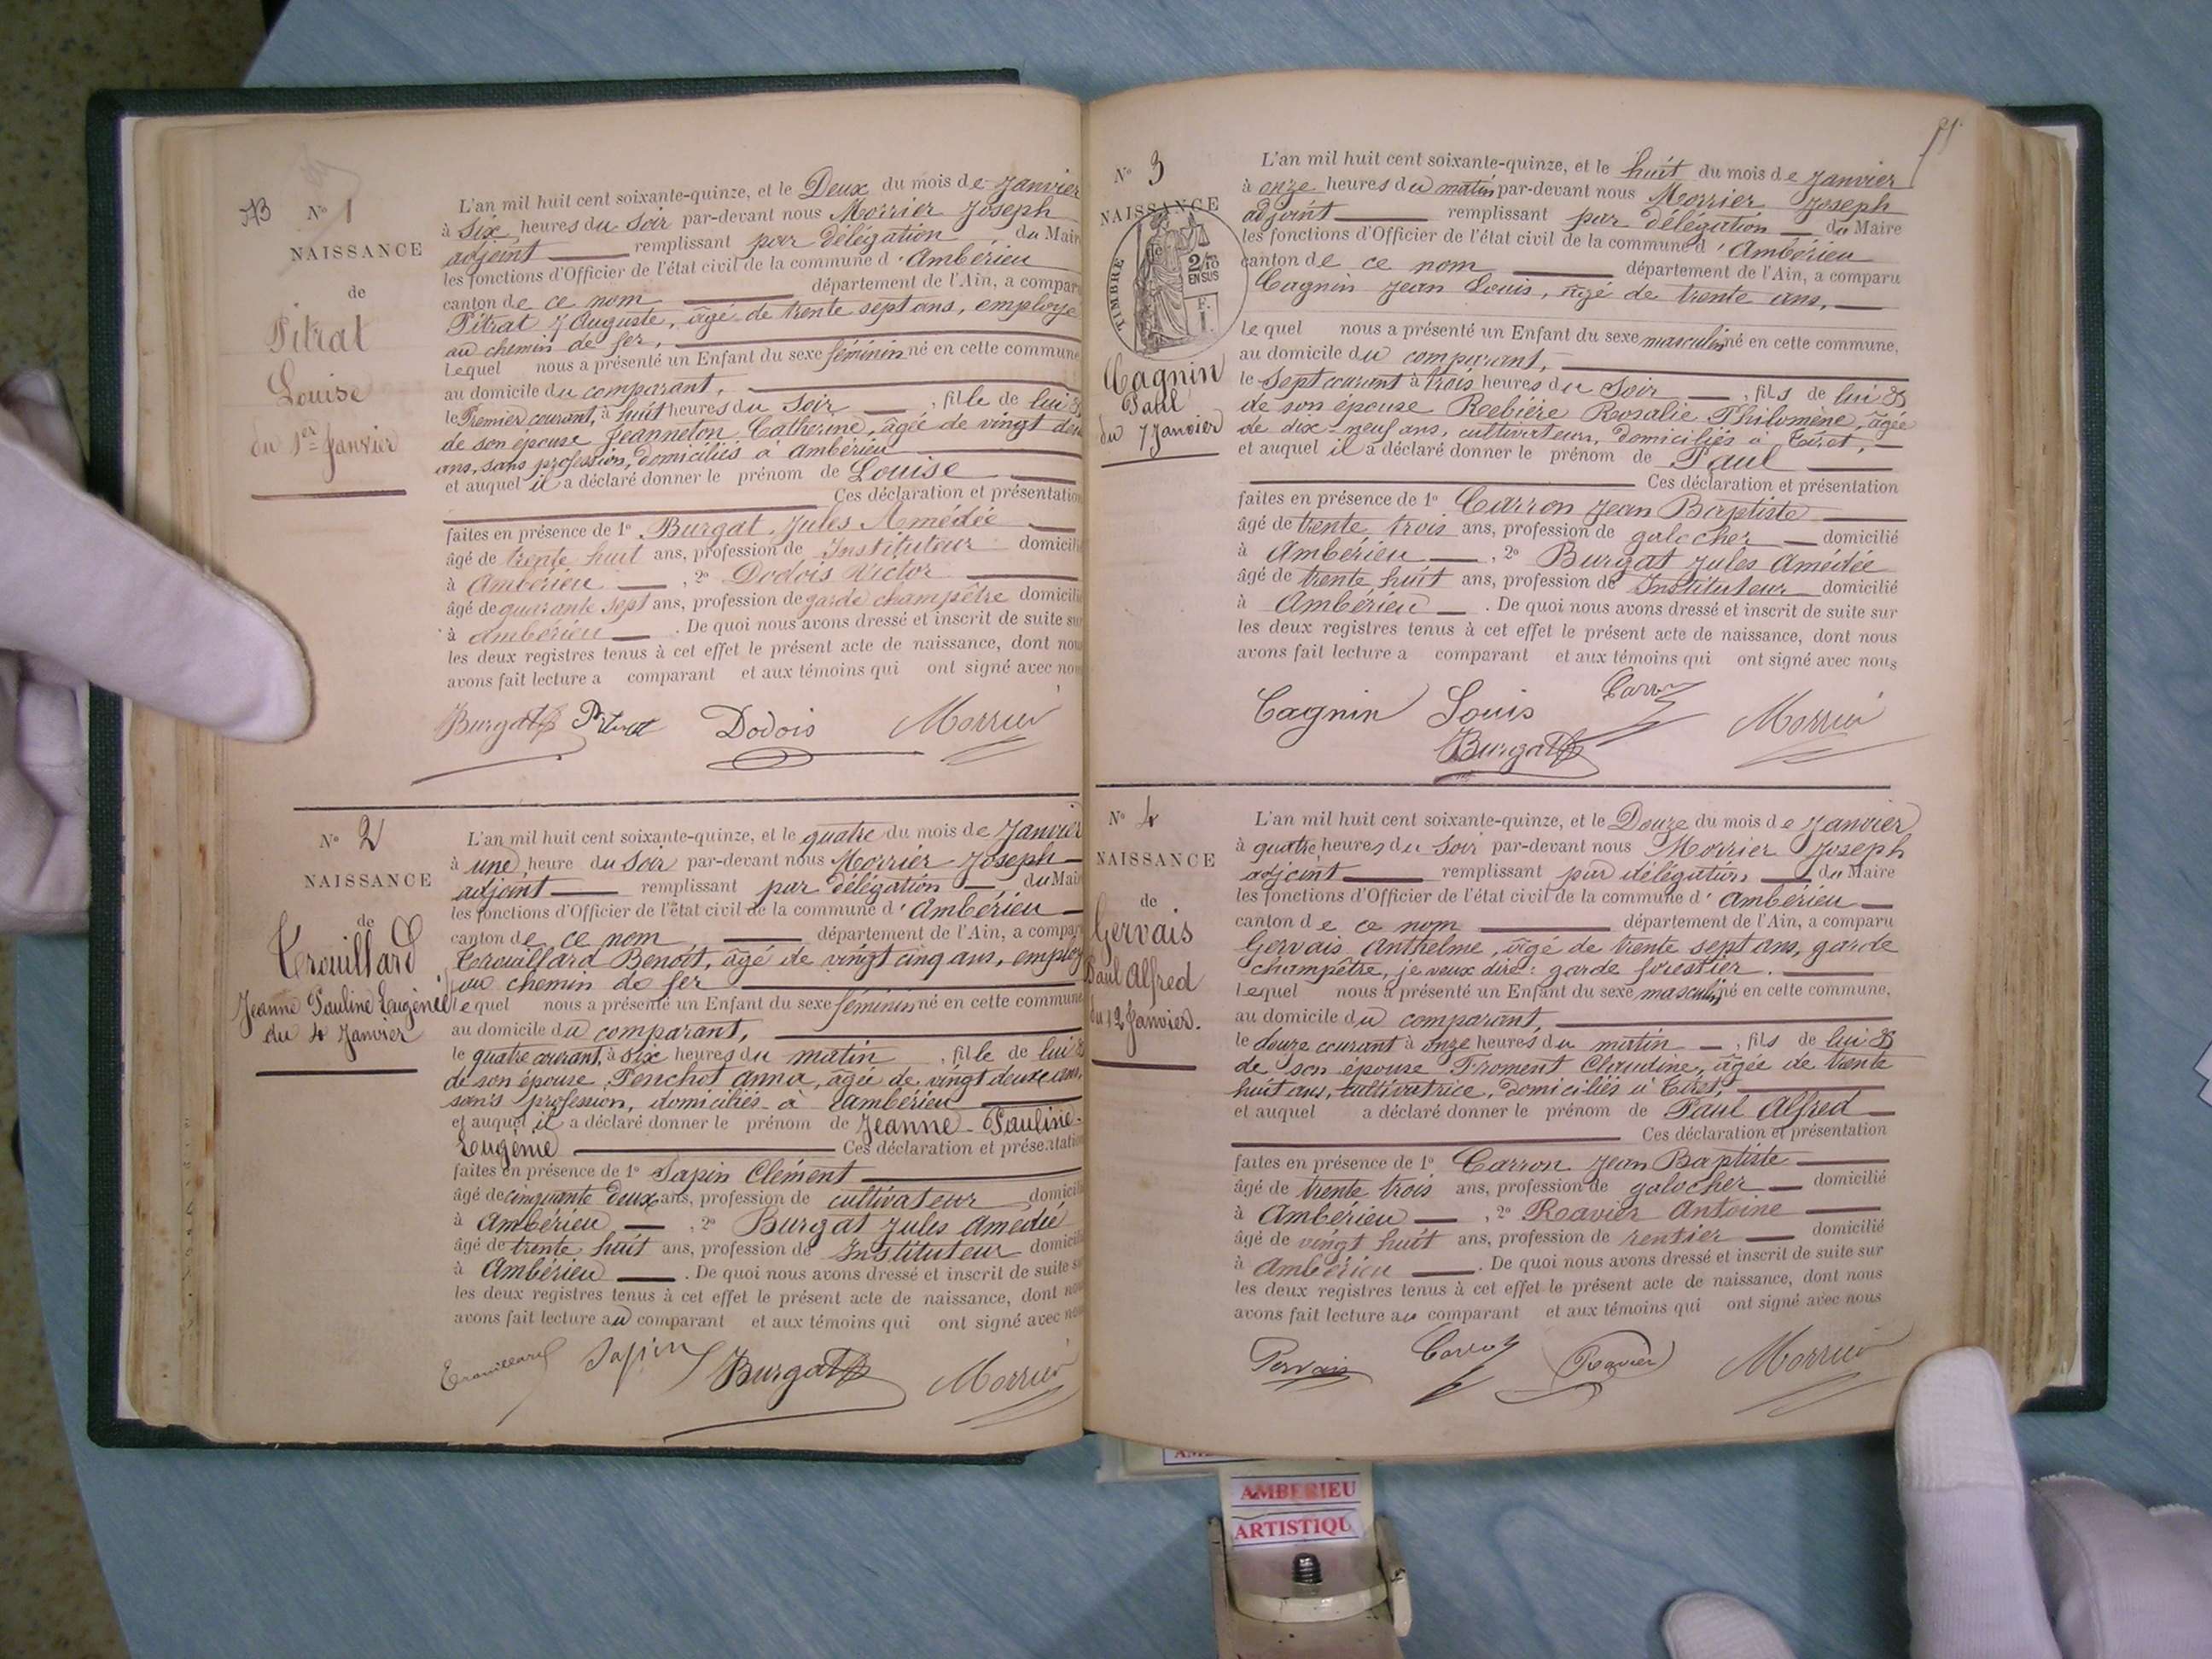 N° 1
NAISSANCE
de
Pitrat
Louise
du 1er Janvier
L'an mil huit cent soixante-quinze, et le Deux du mois de Janvier
à six heures du soir par-devant nous Morrier Joseph
adjoint remplissant par délégation du Maire
les fonctions d'Officier de l'état civil de la commune d'Ambérieu
canton de ce nom département de l'Ain, a compar
Pitrat Auguste, âgé de trente sept ans, employé
au chemin de fer,
Lequel nous a présenté un Enfant du sexe féminin né en cette commune
au domicile du comparant,
le Premier courant, à huit heures du soir , fille de lui &
de son épouse Jeanneton Catherine, âgée de vingt deux
ans, sans profession, domiciliés à ambérieu
et auquel il a déclaré donner le prénom de Louise
Ces déclaration et présentation
faites en présence de 1° Burgat Jules Amédée
âgé de trente huit ans, profession de Instituteur domicili
à Ambérieu , 2° Dodois Victor
âgé de quarante sept ans, profession de garde champêtre domicili
à Ambérieu . De quoi nous avons dressé et inscrit de suite su
les deux registres tenus à cet effet le présent acte de naissance, dont nou
avons fait lecture a comparant et aux témoins qui ont signé avec nou
Burgat Pitrat Dodois Morrier
N° 2
NAISSANCE
de
Trouillard
Jeanne Pauline Eugénie
du 4 Janvier
L'an mil huit cent soixante-quinze, et le quatre du mois de Janvier
à une heure du soir par-devant nous Morrier Joseph
adjoint remplissant par délégation , du Mair
les fonctions d'Officier de l'état civil de la commune d'Ambérieu
canton de ce nom département de l'Ain, a compar
Trouillard Benoît, âgé de vingt cinq ans, employ
au chemin de fer
lequel nous a présenté un Enfant du sexe féminin né en cette commune
au domicile du comparant,
le quatre courant, à six heures du matin , fille de lui &
de son épouse Penchot anna, âgée de vingt deux ans,
sans profession, domiciliés à ambérieu
et auquel il a déclaré donner le prénom de Jeanne - Pauline -
Eugénie Ces déclaration et présentation
faites en présence de 1° Sapin Clément
âgé de cinquante deux ans, profession de cultivateur domicili
à Ambérieu , 2° Burgat Jules Amédée
âgé de trente huit ans, profession de Instituteur domicili
à Ambérieu . De quoi nous avons dressé et inscrit de suite s
les deux registres tenus à cet effet le présent acte de naissance, dont nou
avons fait lecture au comparant et aux témoins qui ont signé avec nou
Trouillard Sapin Burgat Morrier
N° 3
NAISSANCE
TIMBRE
2/10
EN SUS
Cagnin
Paul
du 7 Janvier
L'an mil huit cent soixante-quinze, et le huit du mois de Janvier
à onze heures du matin par-devant nous Morrier Joseph
adjoint remplissant par délégation du Maire
les fonctions d'Officier de l'état civil de la commune d'Ambérieu
canton de ce nom département de l'Ain, a comparu
Cagnin Jean Louis, âgé de trente ans,
Lequel nous a présenté un Enfant du sexe masculin né en cette commune,
au domicile du comparant,
le Sept courant à trois heures du soir , fils de lui &
de son épouse Rebière Rosalie Philomène, âgée
de dix-neuf ans, cultivateurs, domiciliés à Tiret,
et auquel il a déclaré donner le prénom de Paul
Ces déclaration et présentation
faites en présence de 1° Carron Jean Baptiste
âgé de trente trois ans, profession de galocher domicilié
à Ambérieu , 2° Burgat Jules Amédée
âgé de trente huit ans, profession de Instituteur domicilié
à Ambérieu . De quoi nous avons dressé et inscrit de suite sur
les deux registres tenus à cet effet le présent acte de naissance, dont nous
avons fait lecture a comparant et aux témoins qui ont signé avec nous
Cagnin Louis Carron Morrier
Burgat
N° 4
NAISSANCE
de
Gervais
Paul Alfred
du 12 Janvier.
L'an mil huit cent soixante-quinze, et le Douze du mois de Janvier
à quatre heures du soir par-devant nous Morrier Joseph
adjoint remplissant par délégation du Maire
les fonctions d'Officier de l'état civil de la commune d'Ambérieu
canton de ce nom département de l'Ain, a comparu
Gervais Anthelme, âgé de trente sept ans, garde
champêtre, je veux dire : garde forestier.
lequel nous a présenté un Enfant du sexe masculin né en cette commune,
au domicile du comparant,
le douze courant à onze heures du matin , fils de lui &
de son épouse Froment Claudine, âgée de trente
huit ans, cultivatrice, domiciliés à Tiret,
et auquel a déclaré donner le prénom de Paul Alfred
Ces déclaration et présentation
faites en présence de 1° Carron Jean Baptiste
âgé de trente trois ans, profession de galocher domicilié
à Ambérieu , 2° Ravier Antoine
âgé de vingt huit ans, profession de rentier domicilié
à Ambérieu . De quoi nous avons dressé et inscrit de suite sur
les deux registres tenus à cet effet le présent acte de naissance, dont nous
avons fait lecture au comparant et aux témoins qui ont signé avec nous
Gervais Carron Ravier Morrier
AMBERIEU
ARTISTIQU